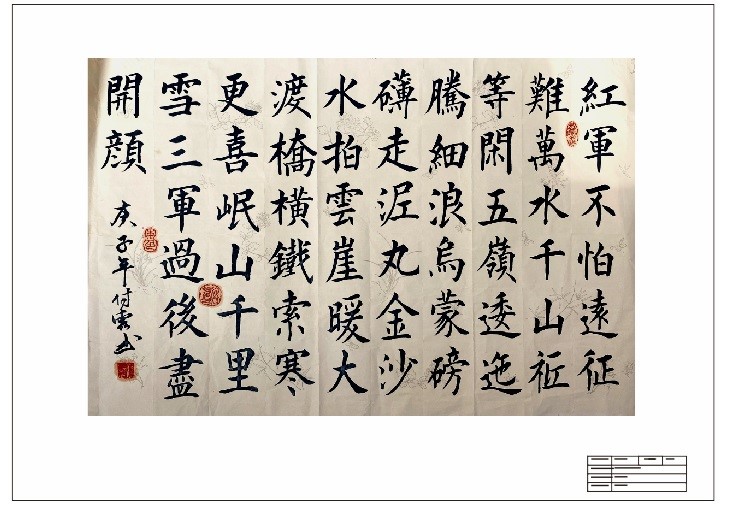 紅軍不怕遠征
難萬水千山祗
等閑五嶺逶迤
騰細浪烏蒙磅
礴走泥丸金沙
水拍雲崖暖大
渡橋横鐵索寒
更喜岷山千里
雪三軍過後盡
開顔
庚子年付雲書